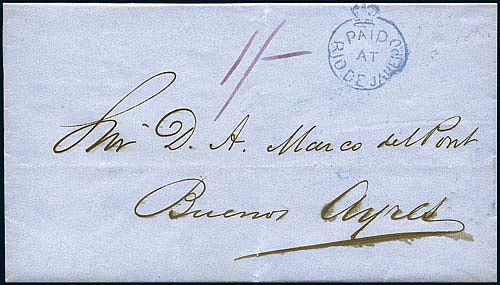 1/-
PAID
AT
RIO DE JANEIRO
Snr D. A. Marco del Pont
Buenos Ayres